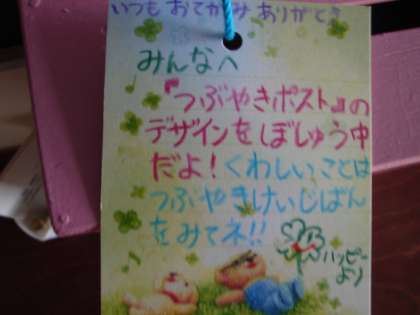 いつもおてがみありがとう
みんなへ
『つぶやきポスト』の
デザインをぼしゅう中
だよ!くわしいことは
つぶやきけいじばん
をみてネ!!
ハッピー
より